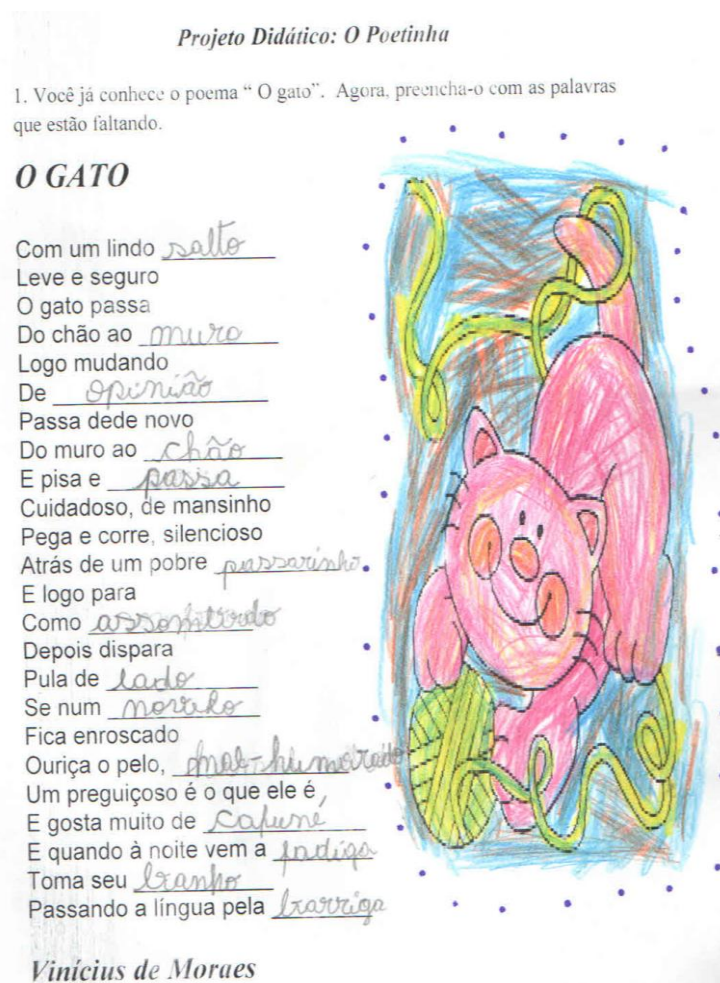 Projeto Didático: O Poetinha
1. Você já conhece o poema “ O gato”. Agora, preencha-o com as palavras
que estão faltando.
O GATO
Com um lindo salto
Leve e seguro
O gato passa
Do chão ao muro
Logo mudando
De opinião
Passa dede novo
Do muro ao chão
E pisa e passa
Cuidadoso, de mansinho
Pega e corre, silencioso
Atrás de um pobre passarinho
E logo para
Como assombrado
Depois dispara
Pula de lado
Se num novelo
Fica enroscado
Ouriça o pelo, mal-humorado
Um preguiçoso é o que ele é
E gosta muito de cafuné
E quando à noite vem a fadiga
Toma seu banho
Passando a língua pela barriga
Vinícius de Moraes